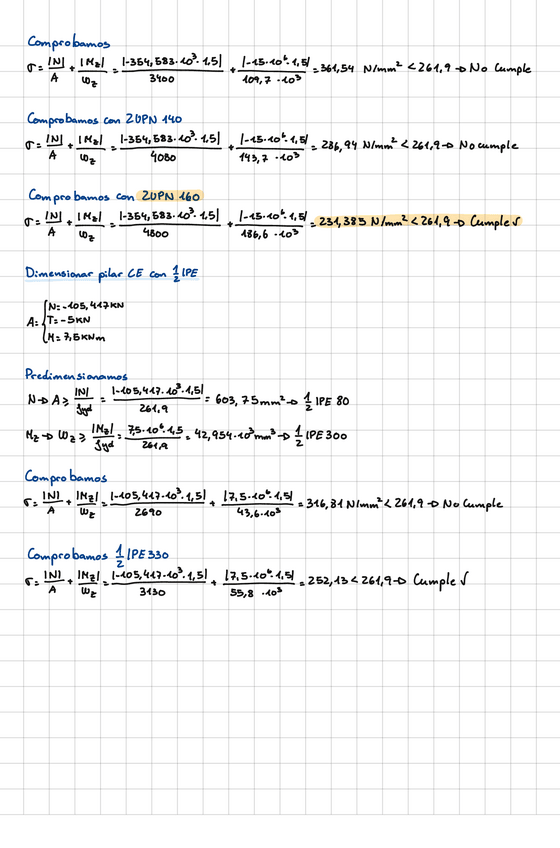 Comprobamos
σ = |N|/A + |Mz|/Wz = |-354,583·10³·1,5|/3400 + |-15·10⁶·1,5|/109,7·10³ = 361,54 N/mm² < 261,9 → No cumple
Comprobamos con 2UPN 140
σ = |N|/A + |Mz|/Wz = |-354,583·10³·1,5|/4080 + |-15·10⁶·1,5|/143,7·10³ = 286,94 N/mm² < 261,9 → No cumple
Comprobamos con 2UPN 160
σ = |N|/A + |Mz|/Wz = |-354,583·10³·1,5|/4800 + |-15·10⁶·1,5|/186,6·10³ = 231,385 N/mm² < 261,9 → Cumple √
Dimensionar pilar CE con 1/2 IPE
A: { N = -105,417 KN
T = -5 KN
M = 7,5 KNm
Predimensionamos
N → A ≥ |N|/fyd = |-105,417·10³·1,5|/261,9 = 603,75 mm² → 1/2 IPE 80
Mz → Wz ≥ |Mz|/fyd = 7,5·10⁶·1,5/261,9 = 42,954·10³ mm³ → 1/2 IPE 300
Comprobamos
σ = |N|/A + |Mz|/Wz = |-105,417·10³·1,5|/2690 + |7,5·10⁶·1,5|/43,6·10³ = 316,81 N/mm² < 261,9 → No Cumple
Comprobamos 1/2 IPE 330
σ = |N|/A + |Mz|/Wz = |-105,417·10³·1,5|/3130 + |7,5·10⁶·1,5|/55,8·10³ = 252,13 < 261,9 → Cumple √